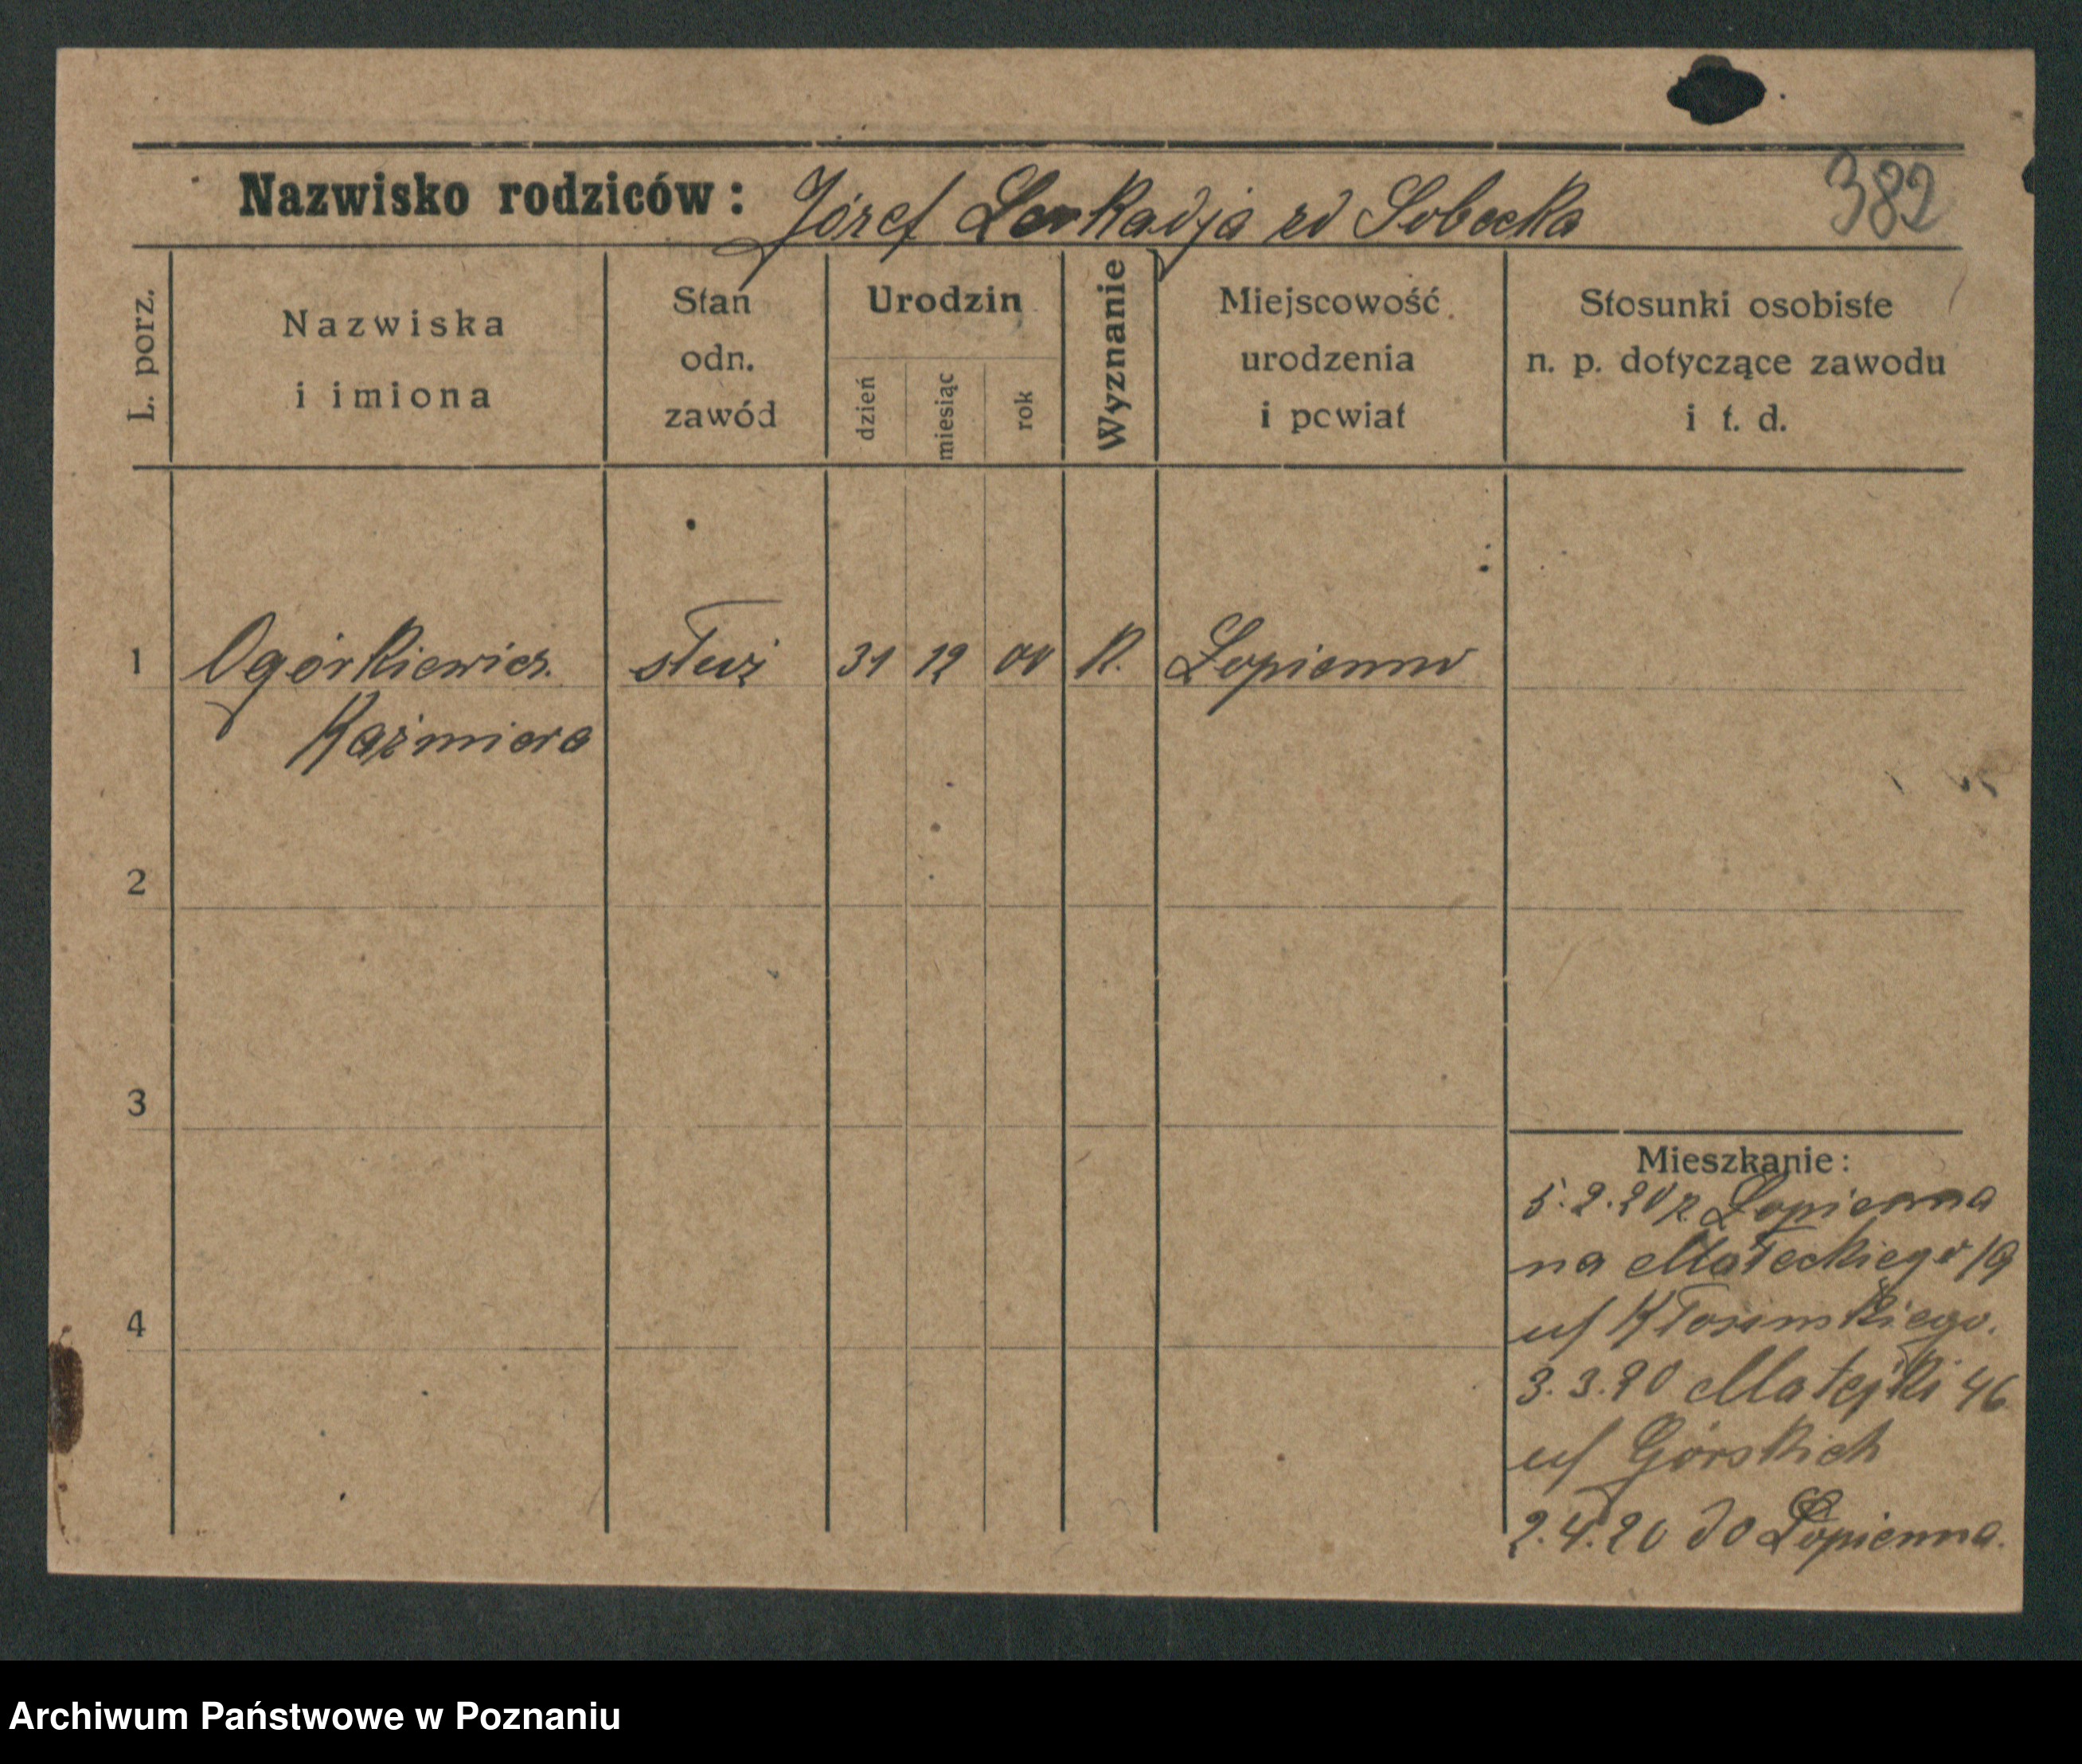 Nazwisko rodziców: Józef Leokadja zd Sobecka 382
L. porz.
Nazwiska
i imiona
Stan
odn.
zawód
Urodzin
dzień
miesiąc
rok
Wyznanie
Miejscowość
urodzenia
i powiat
Stosunki osobiste
n. p. dotyczące zawodu
i t. d.
1 Ogórkiewicz służ 31 12 00 K. Łopienno
Kaźmiera
2
3
4
Mieszkanie:
5.2.20 z Łopienna
na Małeckiego 19
u/ Kłosinskiego.
3.3.20 Matejki 46
u/ Górskich
2.4.20 do Łopienna.
Archiwum Państwowe w Poznaniu